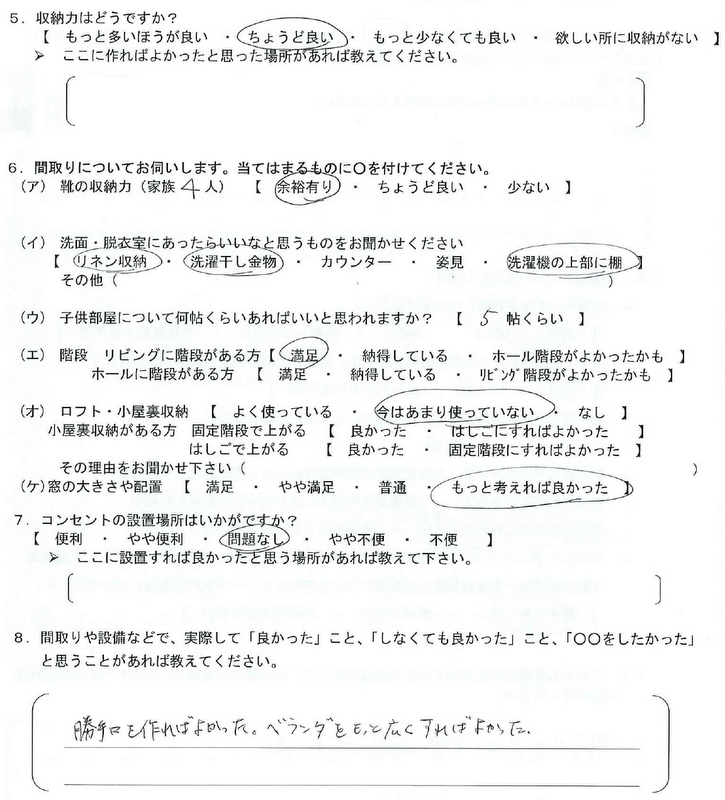 ５．収納力はどうですか？
【 もっと多いほうが良い ・ ちょうど良い ・ もっと少なくても良い ・ 欲しい所に収納がない 】
➢ ここに作ればよかったと思った場所があれば教えてください。
６．間取りについてお伺いします。当てはまるものに〇を付けてください。
（ア） 靴の収納力（家族 4 人） 【 余裕有り ・ ちょうど良い ・ 少ない 】
（イ） 洗面・脱衣室にあったらいいなと思うものをお聞かせください
【 リネン収納 ・ 洗濯干し金物 ・ カウンター ・ 姿見 ・ 洗濯機の上部に棚 】
その他（ ）
（ウ） 子供部屋について何帖くらいあればいいと思われますか？ 【 5 帖くらい 】
（エ） 階段 リビングに階段がある方【 満足 ・ 納得している ・ ホール階段がよかったかも 】
ホールに階段がある方 【 満足 ・ 納得している ・ ﾘﾋﾞﾝｸﾞ階段がよかったかも 】
（オ） ロフト・小屋裏収納 【 よく使っている ・ 今はあまり使っていない ・ なし 】
小屋裏収納がある方 固定階段で上がる 【 良かった ・ はしごにすればよかった 】
はしごで上がる 【 良かった ・ 固定階段にすればよかった 】
その理由をお聞かせ下さい（ ）
（ケ）窓の大きさや配置 【 満足 ・ やや満足 ・ 普通 ・ もっと考えれば良かった 】
７．コンセントの設置場所はいかがですか？
【 便利 ・ やや便利 ・ 問題なし ・ やや不便 ・ 不便 】
➢ ここに設置すれば良かったと思う場所があれば教えて下さい。
８．間取りや設備などで、実際して「良かった」こと、「しなくても良かった」こと、「〇〇をしたかった」
と思うことがあれば教えてください。
勝手口を作ればよかった。ベランダをもっと広くすればよかった。